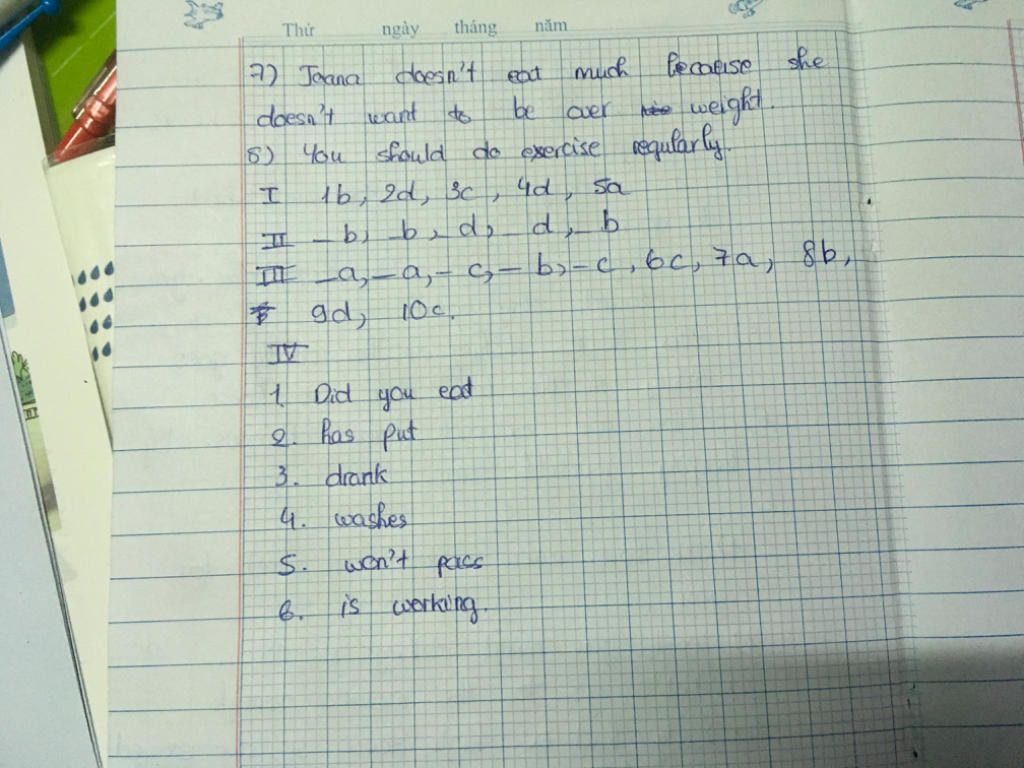 Thứ ngày tháng năm
7) Joana doesn't eat much because she
doesn't want to be over weight.
8) You should do exercise regularly.
I 1b, 2d, 3c, 4d, 5a
II _b, _b, d, _d, _b
III _a, _a, - c, - b, - c, 6c, 7a, 8b,
9d, 10c.
IV
1. Did you eat
2. has put
3. drank
4. washes
5. won't pass
6. is working.